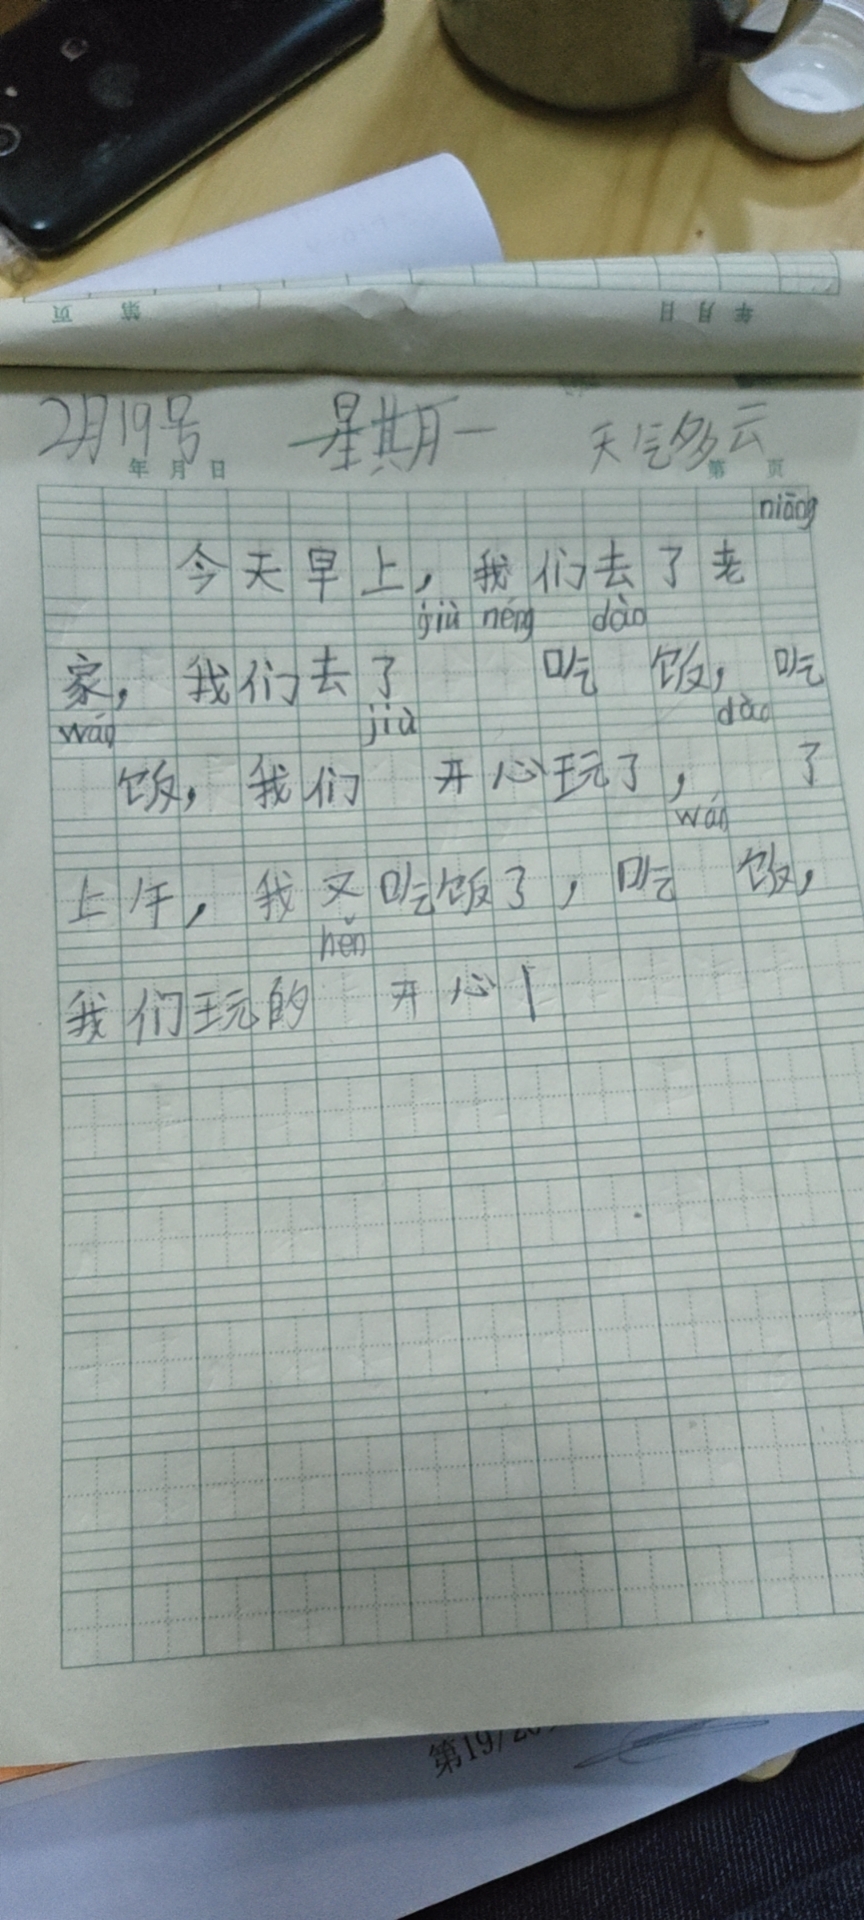 页 第 日 月 年
2月19号 星期一 天气多云
年 月 日 第 页
niāng
今天早上，我们去了老
jiù néng dào
家，我们去了 吃 饭，吃
wán jiù dào
饭，我们 开心玩了， 了
wán
上午，我又吃饭了，吃 饭，
hěn
我们玩的 开心
第19/20